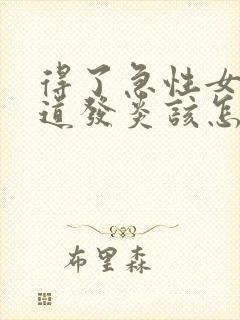 得了急性女
道發炎該怎
布里森